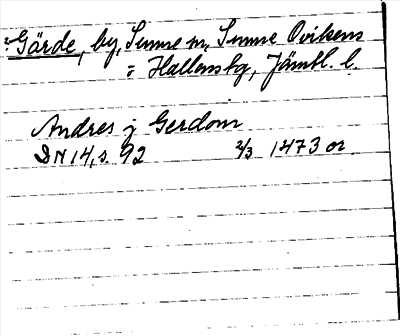 ²Gärde, by, Sunne sn, Sunne Ovikens
o Hallens tg, Jämtl. l.
Andres j Gerdom
DN 14, s. 92 2/3 1473 or.